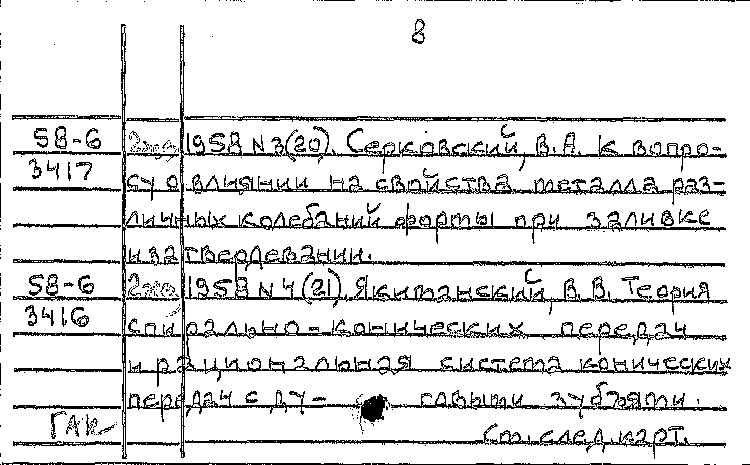 8
58-6 2экз 1958 N 3(20). Серковский, В.А. К вопро-
3417 су о влиянии на свойства металла раз-
личных колебаний формы при заливке
и затвердевании.
58-6 2экз 1958 N 4(21). Якиманский, В.В. Теория
3416 спирально-конических передач
и рациональная система конических
передач с ду- говыми зубьями.
См. след. карт.